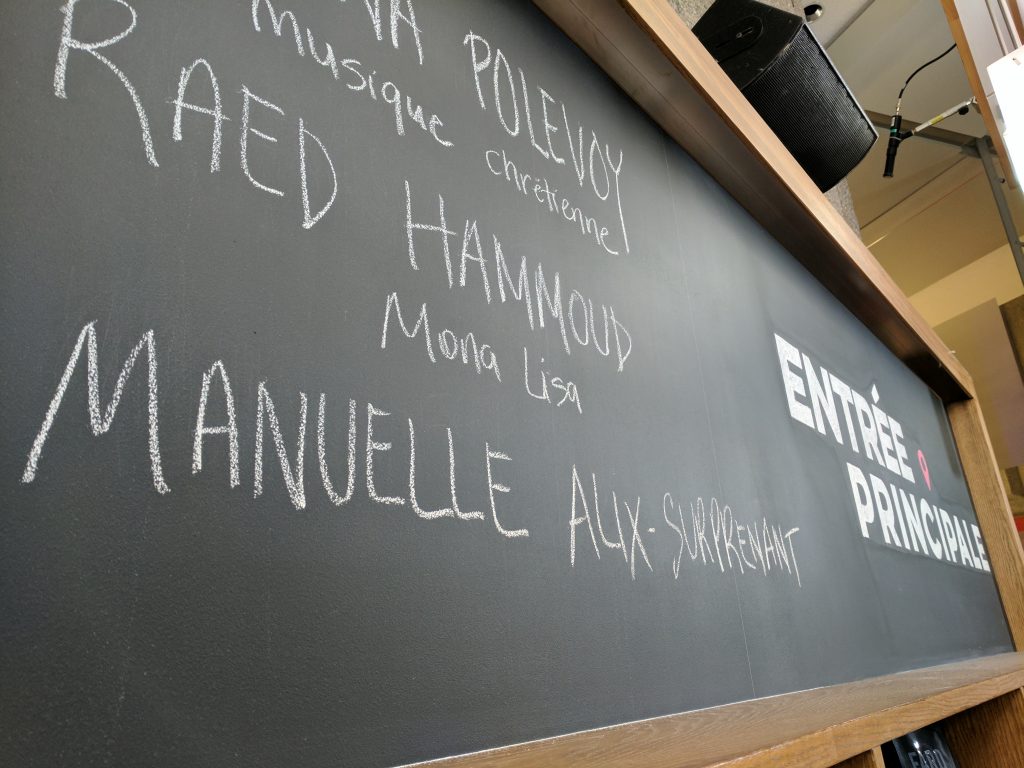 POLEVOY
musique chrétienne
RAED HAMMOUD
Mona Lisa
MANUELLE ALIX-SURPRENANT
ENTRÉE
PRINCIPALE